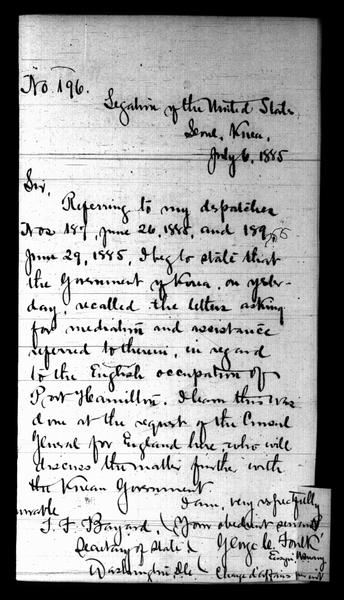 No. 196.
Legation of the United States
Seoul, Korea,
July 6, 1885
Sir,
Referring to my dispatches
Nos 187, June 26, 1885, and 189,
June 29, 1885, I beg to state that
the Government of Korea, on yester-
day, recalled the letters asking
for mediation and assistance
referred to therein, in regard
to the English occupation of
Port Hamilton. I learn this was
done at the request of the Consul
General for England here, who will
discuss the matter further with
the Korean Government.
I am, very respectfully
Your obedient servant
T. F. Bayard,
George C. Foulk
Secretary of State
Ensign U.S. Navy
Washington D.C.
Chargé d'affaires